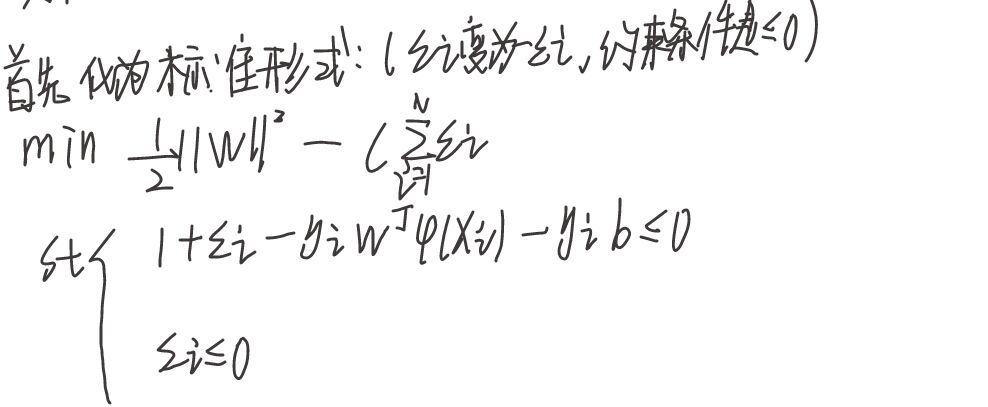 首先化为标准形式:(ξi变为-ξi,约束条件是≤0)
min 1/2||W||² - C∑i=1N ξi
st{ 1+ξi-yiWTφ(Xi)-yib≤0
ξi≤0